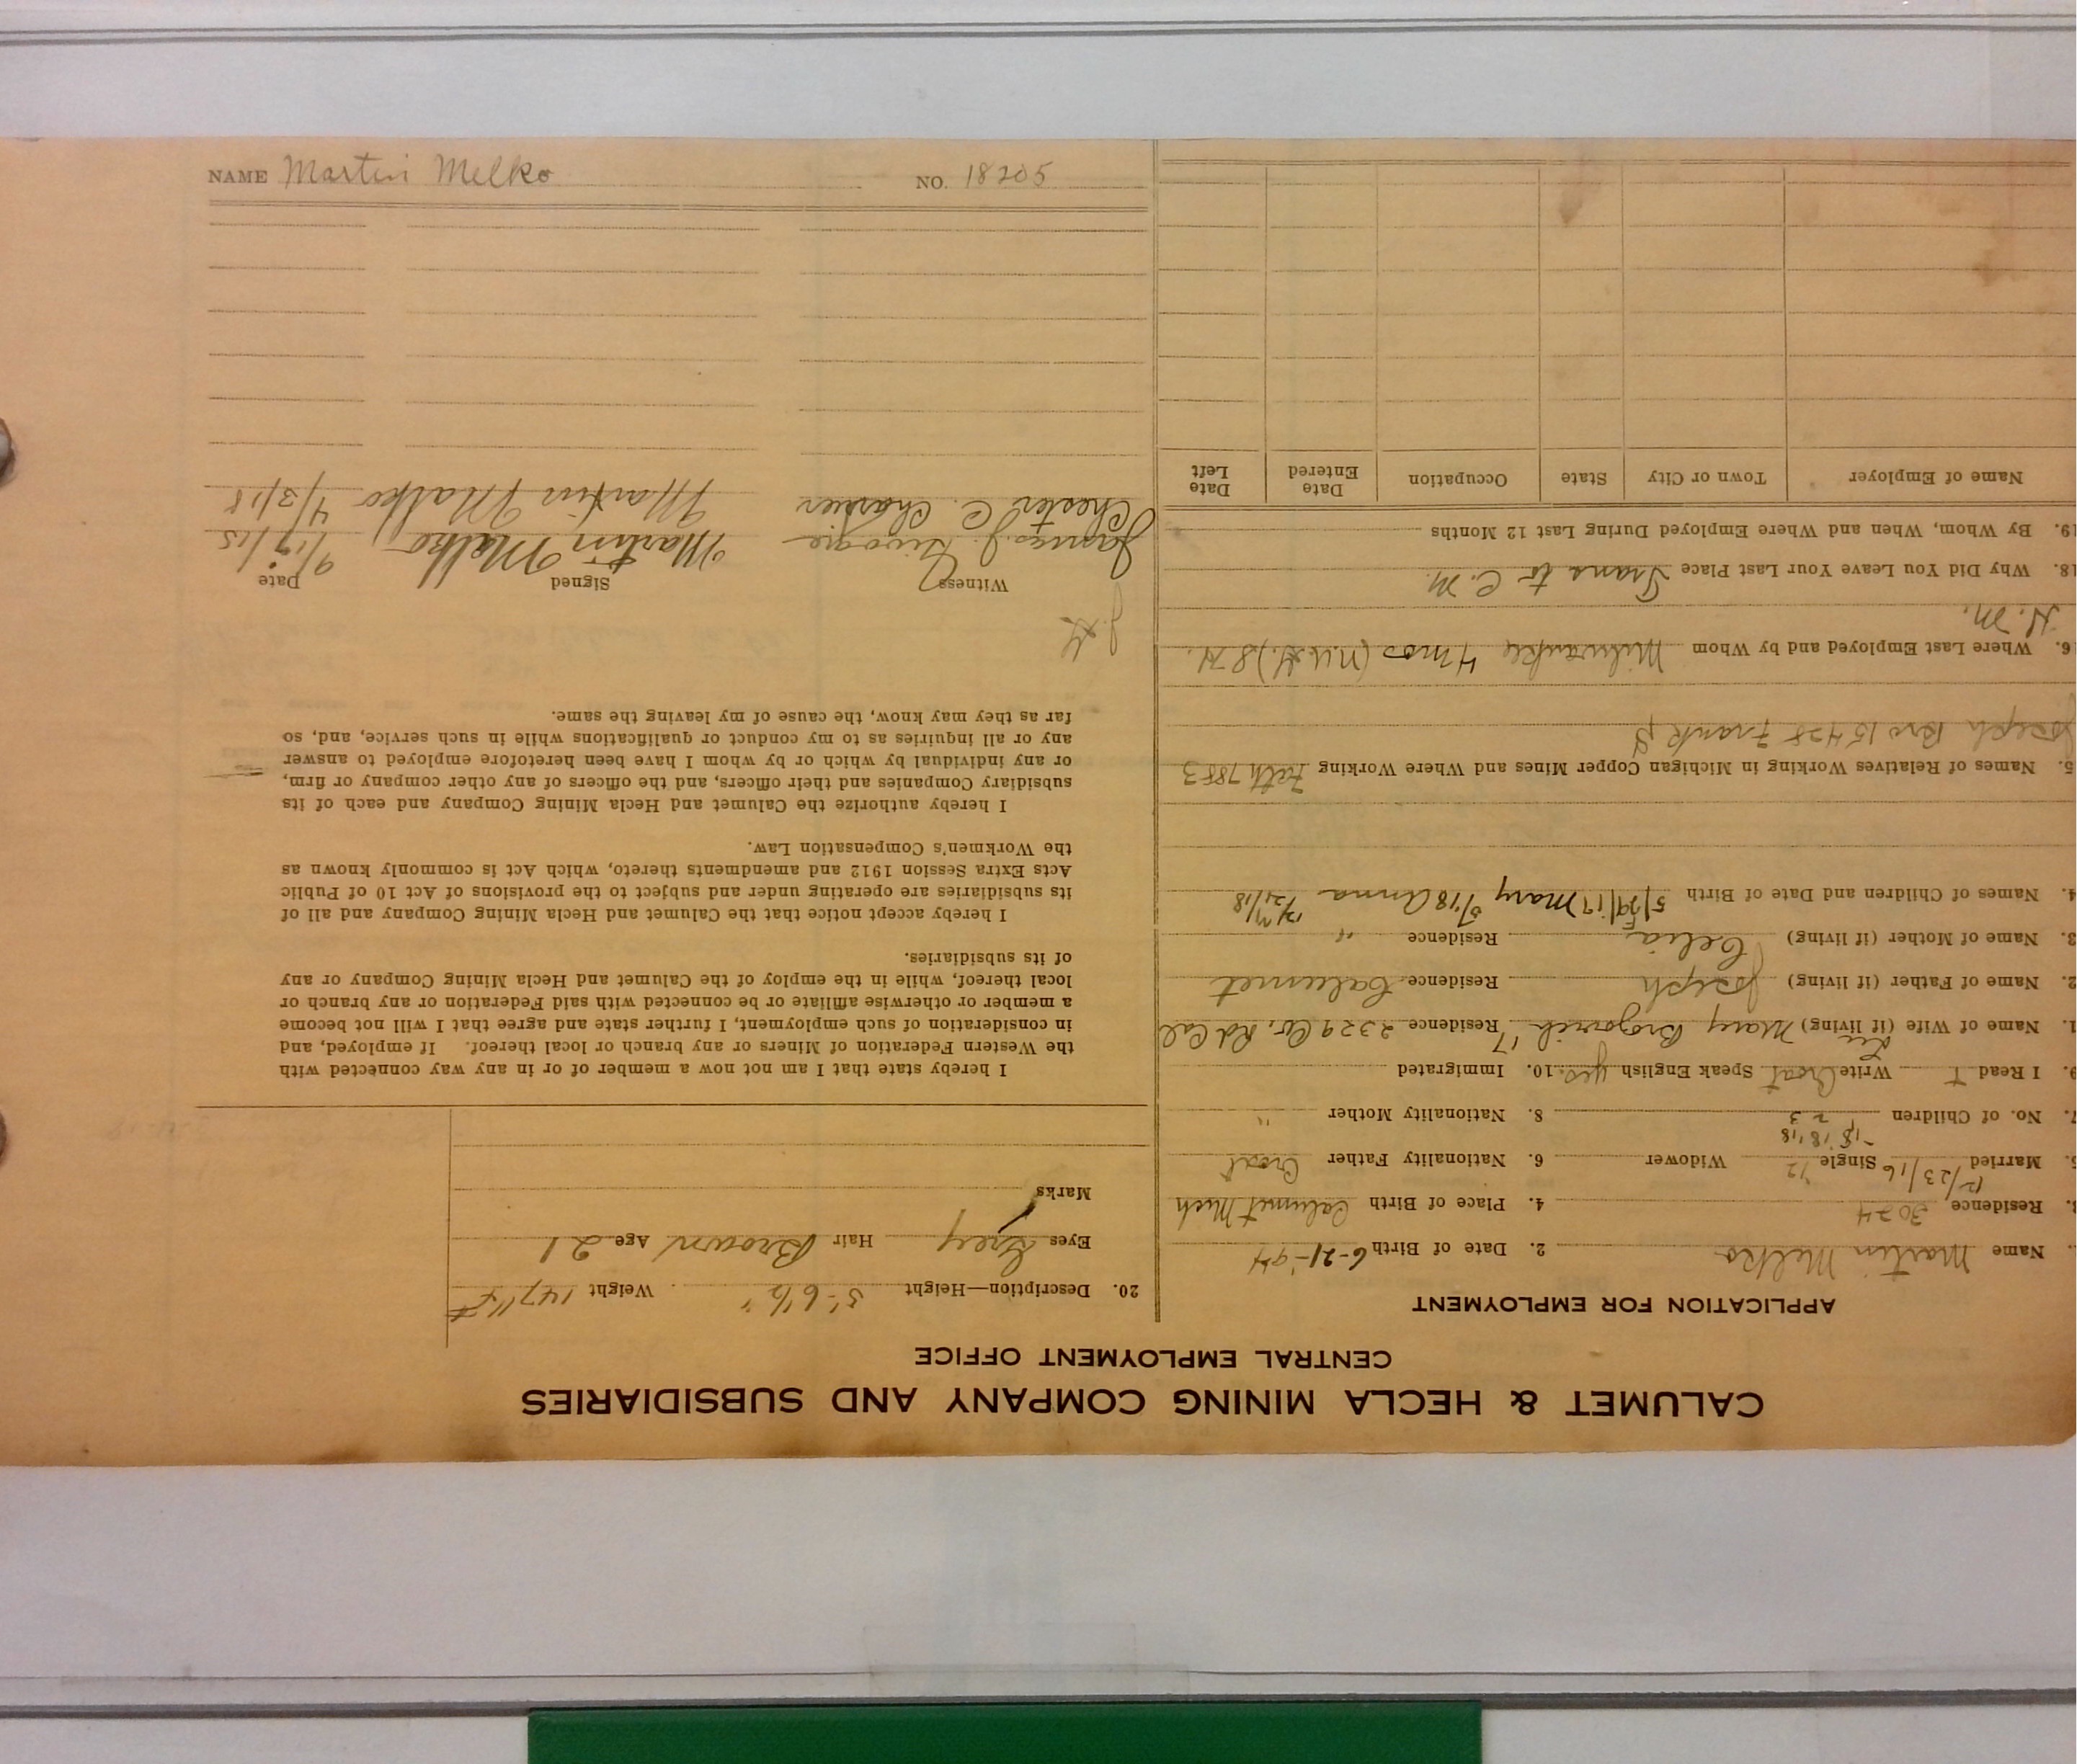 CALUMET & HECLA MINING COMPANY AND SUBSIDIARIES
CENTRAL EMPLOYMENT OFFICE
APPLICATION FOR EMPLOYMENT
Name Martin Melko 2. Date of Birth 6-21-'94
Residence 3024 4. Place of Birth Calumet Mich
Married 12/23/16 Single Widower 6. Nationality Father Croat
'18 '18 '18
7. No. of Children 2 3 8. Nationality Mother "
9. I Read Write Croat Speak English yes 10. Immigrated
1. Name of Wife (if living) Mary Brozovich '17 Residence 2329 Co. Rd Cal
2. Name of Father (if living) Joseph Residence Calumet
3. Name of Mother (if living) Celia Residence "
4. Names of Children and Date of Birth 5/29/17 Mary /18 Anna
5. Names of Relatives Working in Michigan Copper Mines and Where Working Fath 7883
Joseph Bro 15428 Frank
6. Where Last Employed and by Whom Milwaukee 4 mos
H. M.
18. Why Did You Leave Your Last Place Trans to C. M.
19. By Whom, When and Where Employed During Last 12 Months
Name of Employer Town or City State Occupation Date Entered Date Left
20. Description—Height 5'-6½" Weight 147
Eyes Grey Hair Brown Age 21
Marks
I hereby state that I am not now a member of or in any way connected with
the Western Federation of Miners or any branch or local thereof. If employed, and
in consideration of such employment, I further state and agree that I will not become
a member or otherwise affiliate or be connected with said Federation or any branch or
local thereof, while in the employ of the Calumet and Hecla Mining Company or any
of its subsidiaries.
I hereby accept notice that the Calumet and Hecla Mining Company and all of
its subsidiaries are operating under and subject to the provisions of Act 10 of Public
Acts Extra Session 1912 and amendments thereto, which Act is commonly known as
the Workmen's Compensation Law.
I hereby authorize the Calumet and Hecla Mining Company and each of its
subsidiary Companies and their officers, and the officers of any other company or firm,
or any individual by which or by whom I have been heretofore employed to answer
any or all inquiries as to my conduct or qualifications while in such service, and, so
far as they may know, the cause of my leaving the same.
Witness Signed Date
James J. Martin Melko 9/19/15
Chester C. Charlier Martin Malko 4/3/18
NAME Martin Melko NO. 18205